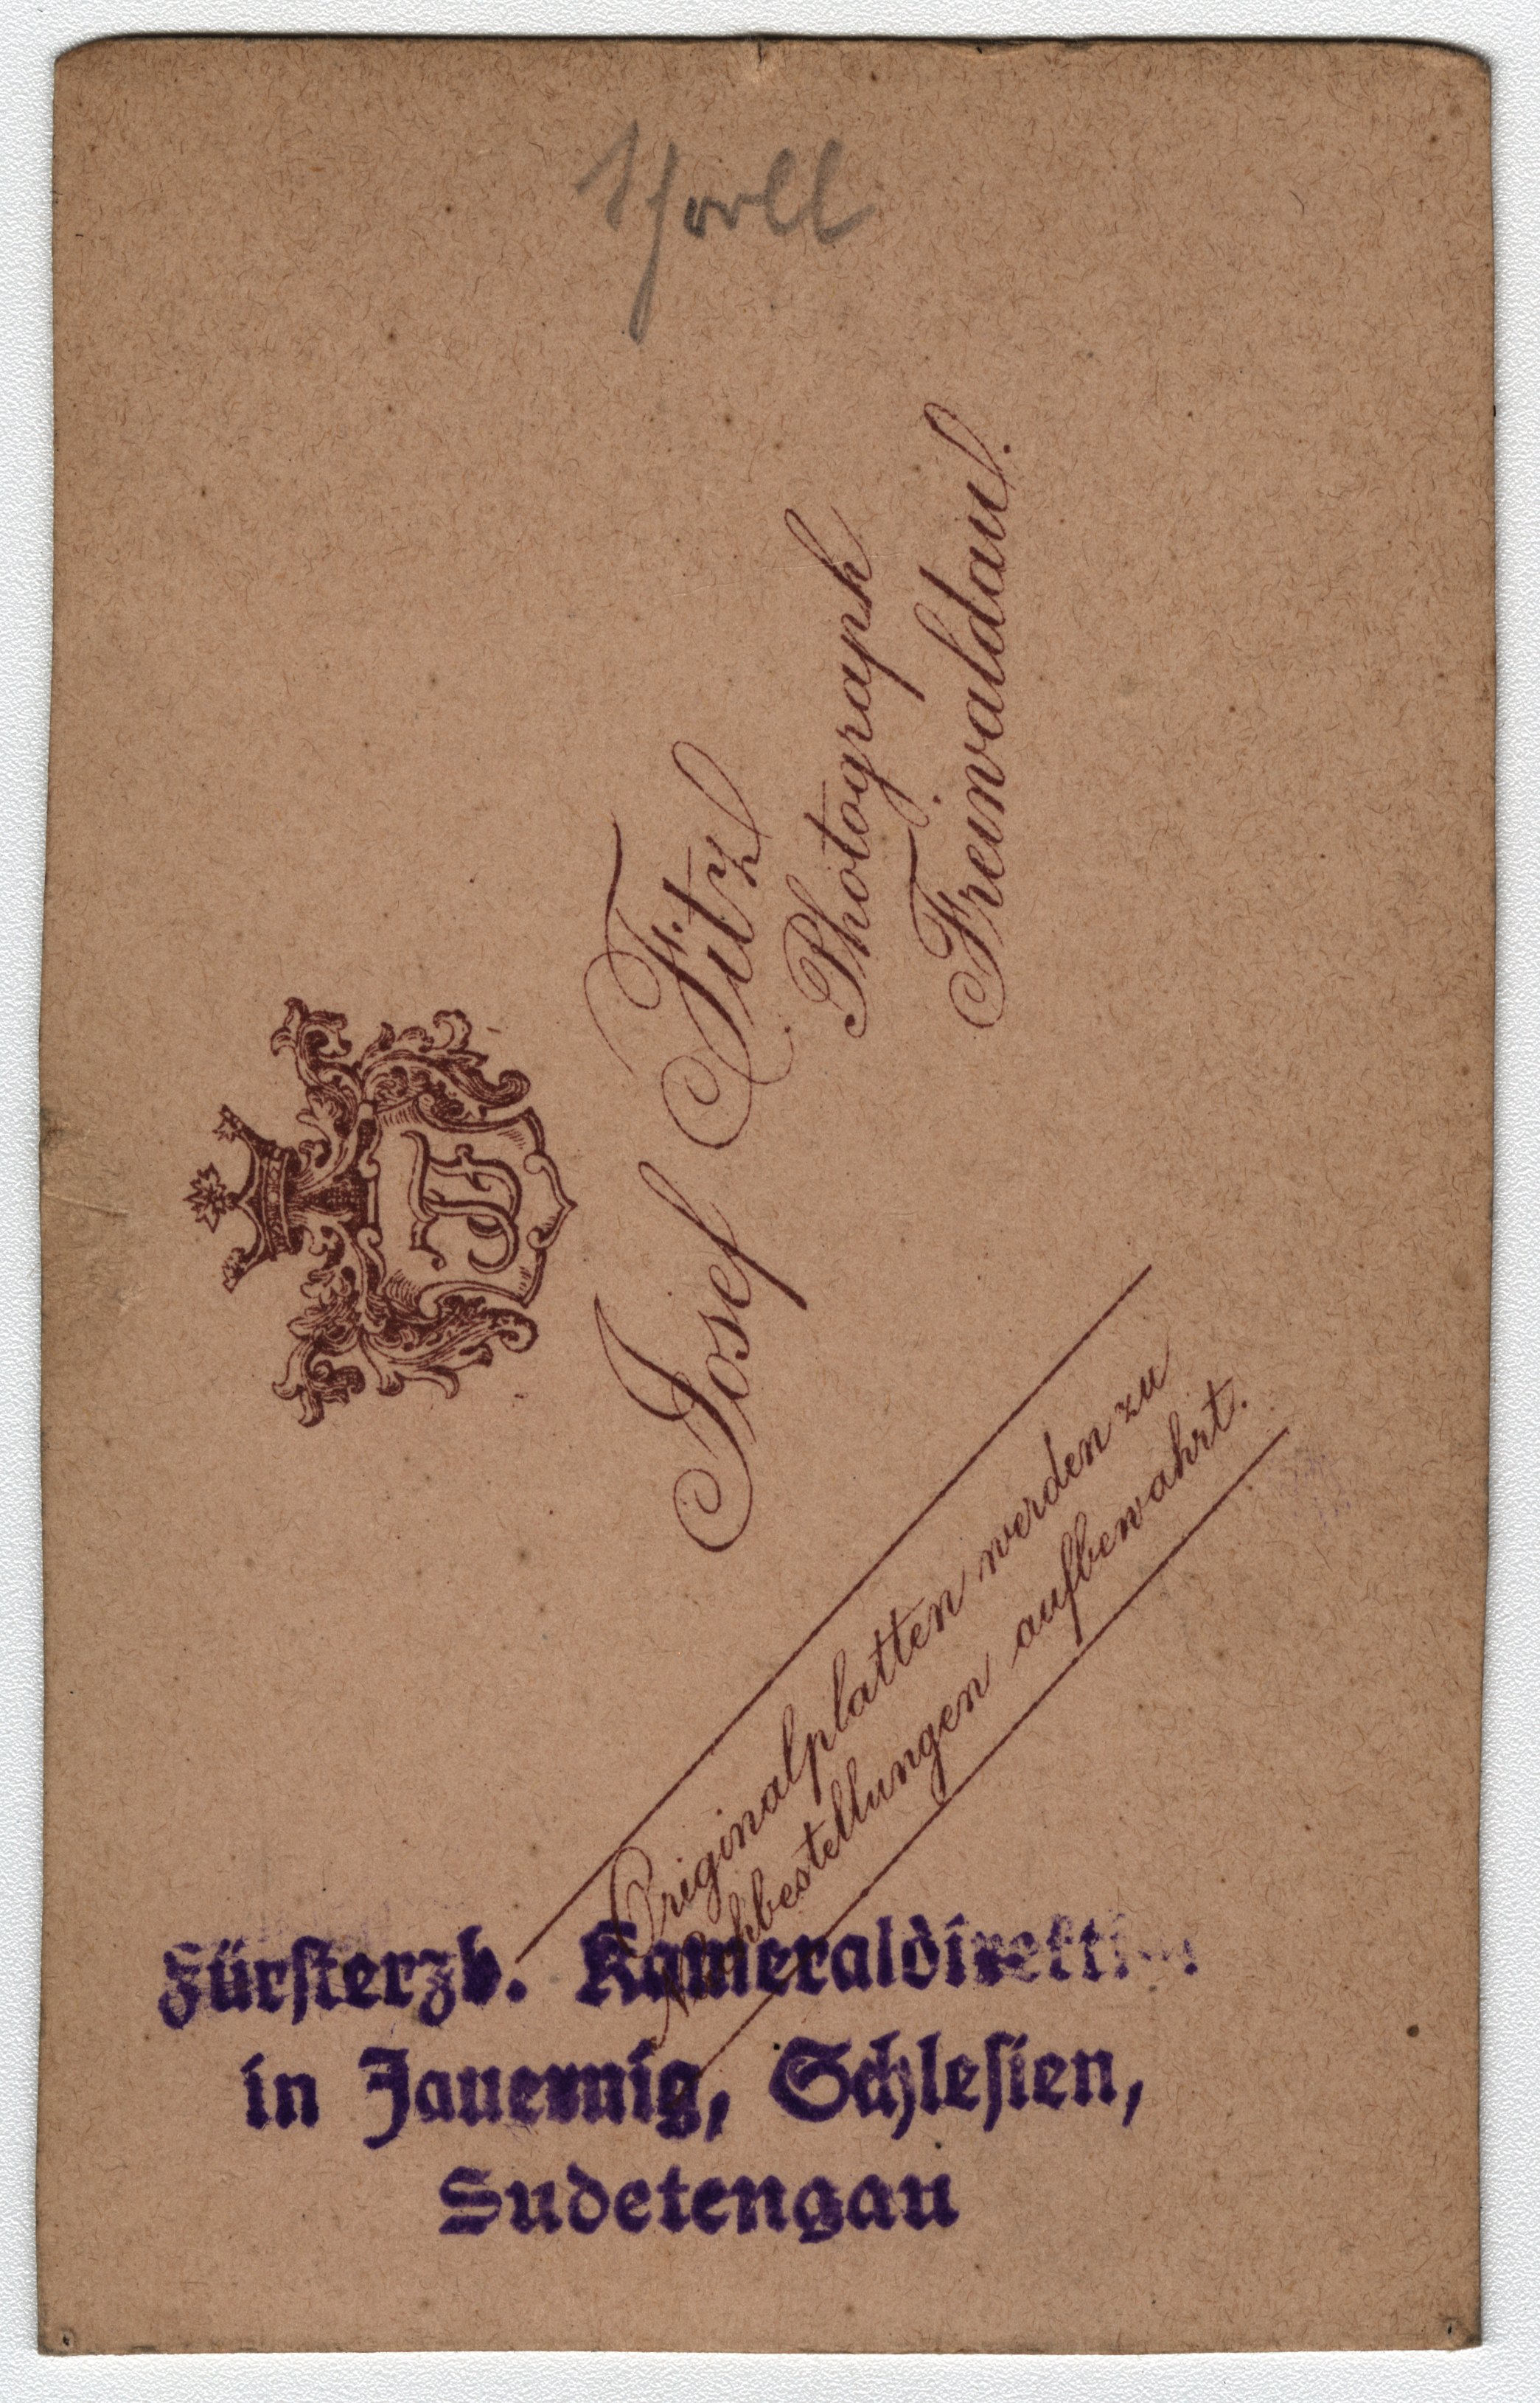 Josef Fitz
Photograph
Freiwaldau.
Originalplatten werden zu
Nachbestellungen aufbewahrt.
Fürsterzb. Kameraldirektion
in Jauernig, Schlesien,
Sudetengau